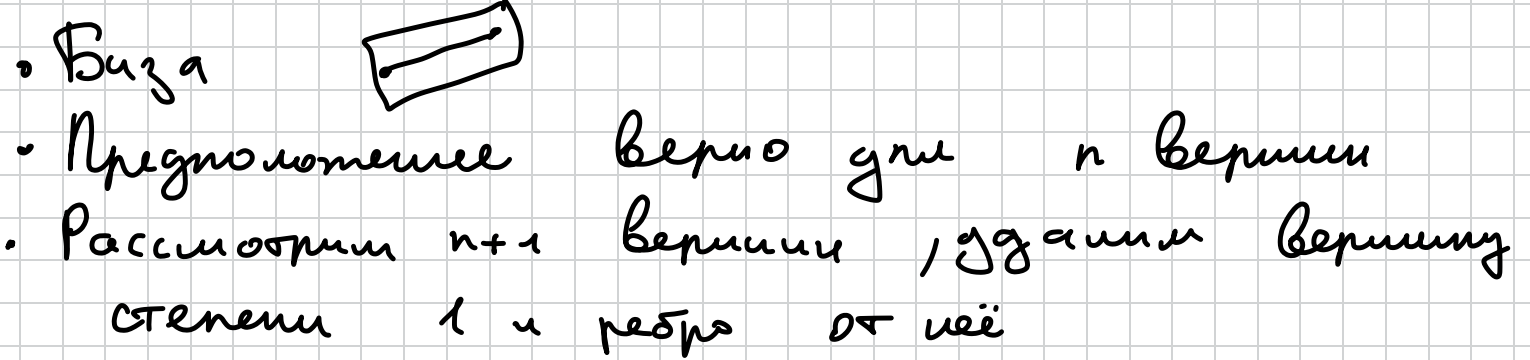 • База
• Предположение верно для n вершин
• Рассмотрим n+1 вершин, удалим вершину
степени 1 и ребро от неё